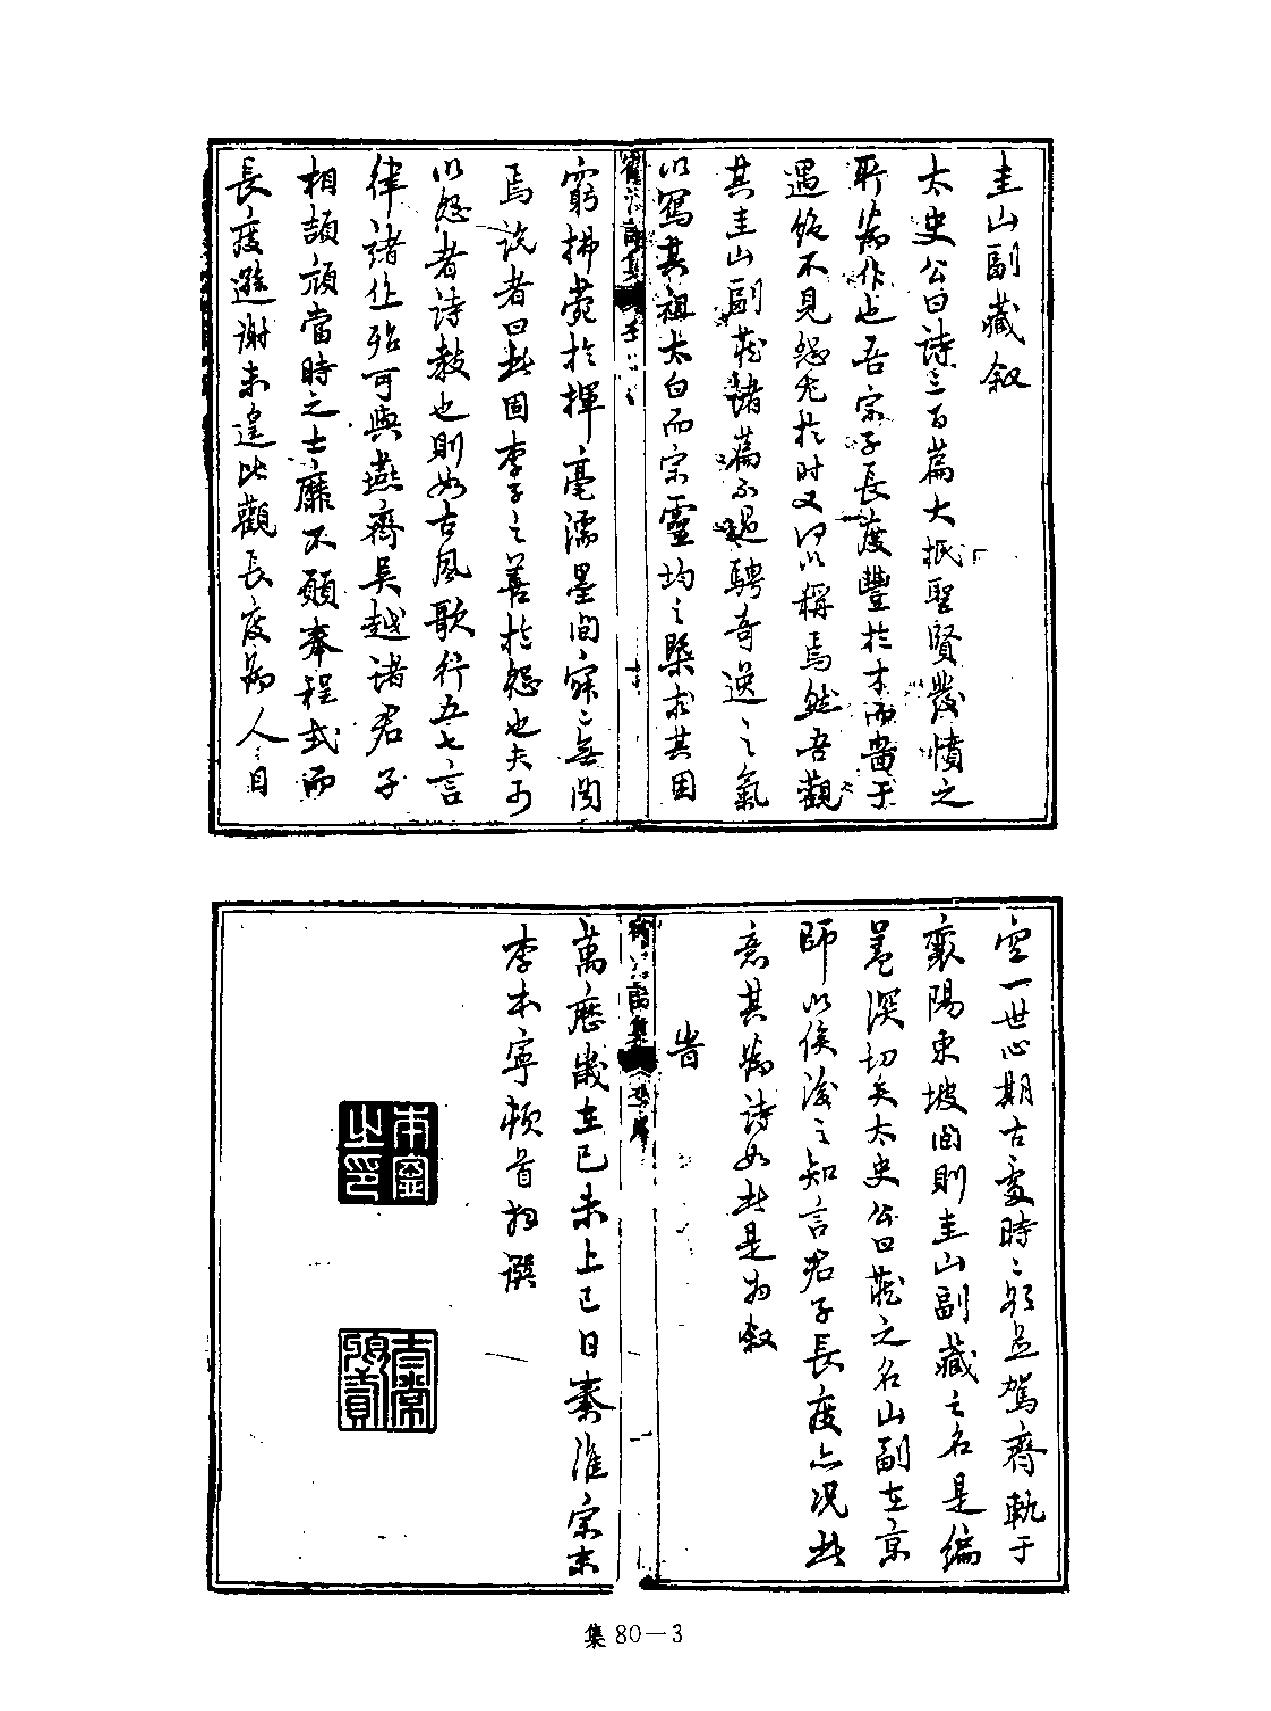 圭山副藏叙
太史公曰詩三百篇大抵聖賢發憤之
所為作也吾宗子長度豐於才而嗇于
遇然不見怨尤於时又何以稱焉然吾觀
其圭山副藏諸篇不過騁奇逸之氣
以寫其祖太白而宗靈均之槩於其困
窮拂鬱於揮毫濡墨間寂寂無閔
焉說者曰此固李子之善於怨也夫可
以怨者詩教也則如古風歌行五七言
律諸作殆可與燕齊吳越諸君子
相頡頏當時之士靡不願奉程式而
長度遜謝未遑比觀長度為人人目
空一世心期古處時時欲並駕齊軌于
襄陽東坡間則圭山副藏之名是編
意深切矣太史公曰藏之名山副在京
師以俟後之知言君子長度亦況此
意其為詩如此是為敘
旹
萬歷歲在己未上巳日秦淮宗末
李本寧頓首拜譔
本寧之印
集 80—3